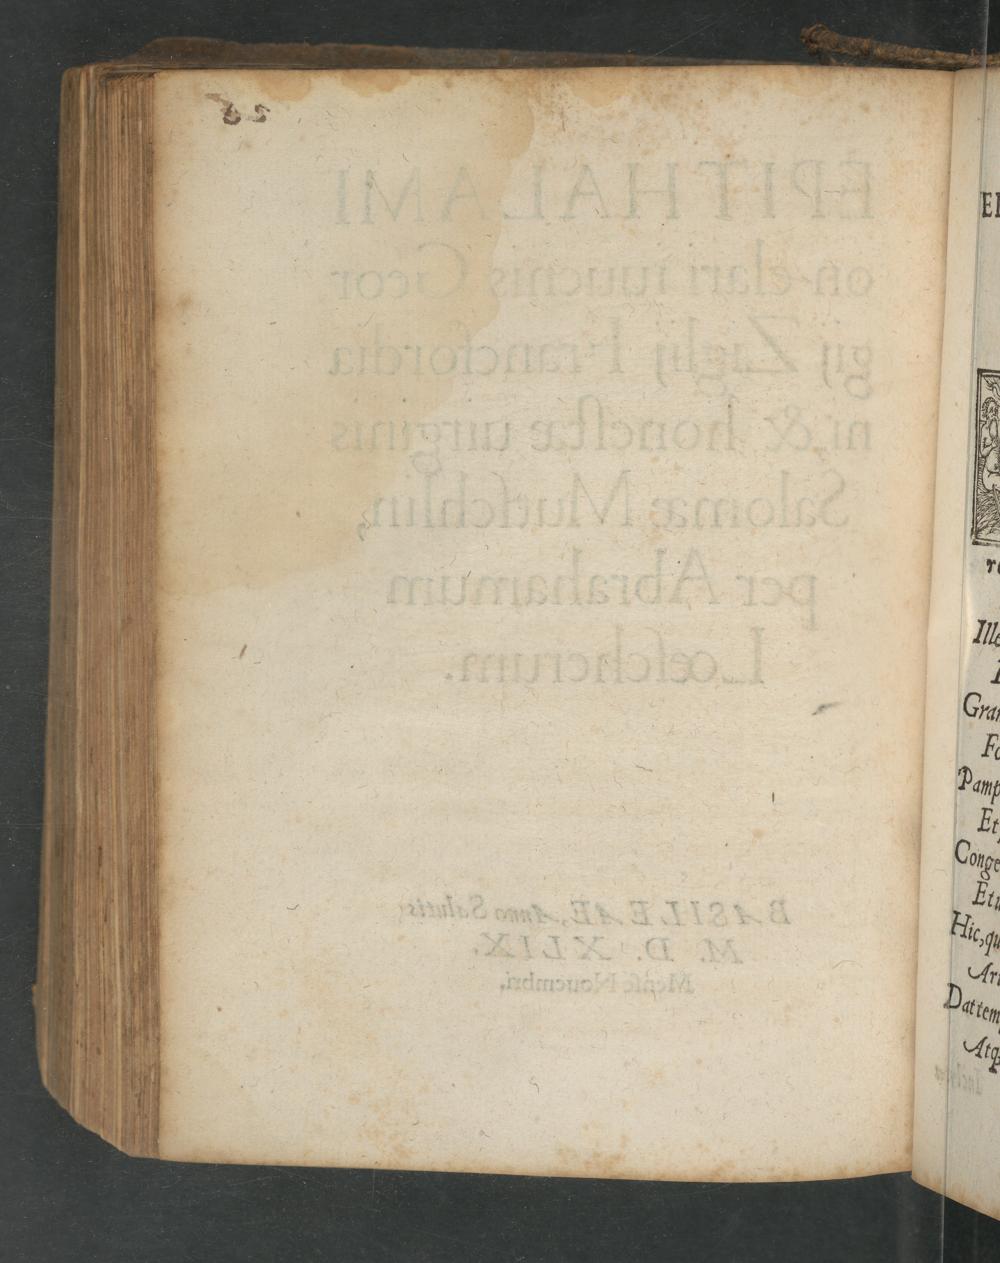 EPITHALAMI
on clari iuuenis Geor
gij Ziglij Francfordia
ni, & honestæ uirginis
Salomæ Mueschlin,
per Abrahamum
Lœscherum.
BASILEAE, Anno Salutis,
M. D. XLIX.
Mense Nouembri.
Ille
Gran
Fo
Pamp
Et,
Conge
Etu
Hic, qu
Ari
Dat tem
Atq;